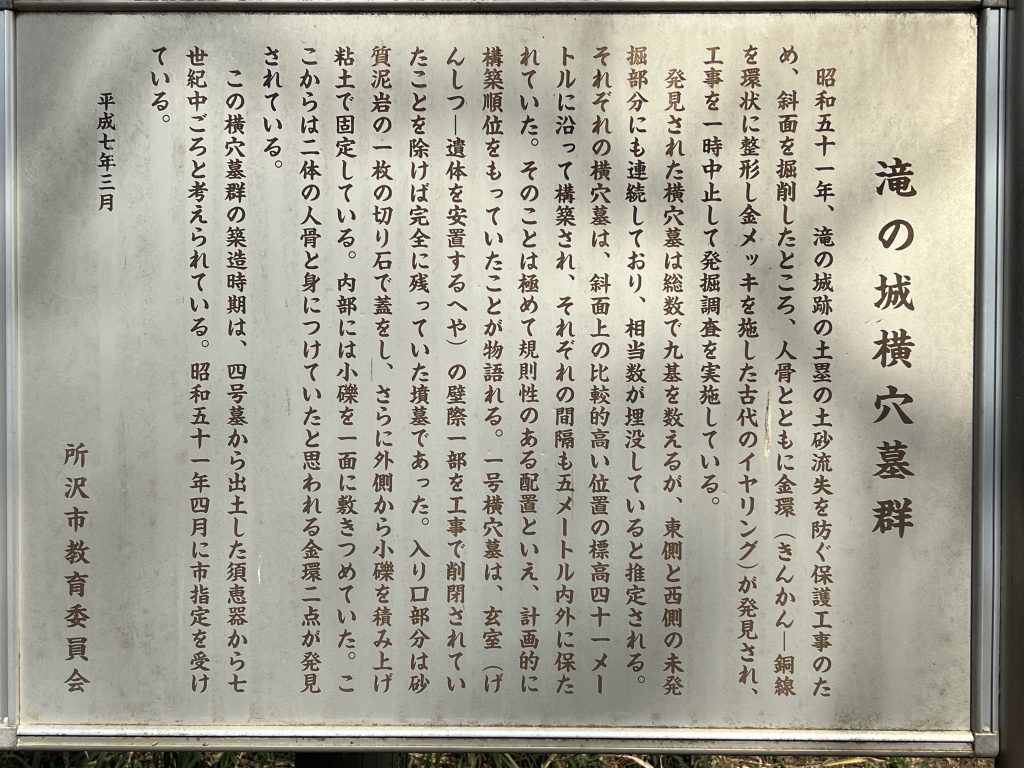 滝の城横穴墓群
昭和五十一年、滝の城跡の土塁の土砂流失を防ぐ保護工事のた
め、斜面を掘削したところ、人骨とともに金環（きんかん―銅線
を環状に整形し金メッキを施した古代のイヤリング）が発見され、
工事を一時中止して発掘調査を実施している。
発見された横穴墓は総数で九基を数えるが、東側と西側の未発
掘部分にも連続しており、相当数が埋没していると推定される。
それぞれの横穴墓は、斜面上の比較的高い位置の標高四十一メー
トルに沿って構築され、それぞれの間隔も五メートル内外に保た
れていた。そのことは極めて規則性のある配置といえ、計画的に
構築順位をもっていたことが物語れる。一号横穴墓は、玄室（げ
んしつ―遺体を安置するへや）の壁際一部を工事で削閉されてい
たことを除けば完全に残っていた墳墓であった。入り口部分は砂
質泥岩の一枚の切り石で蓋をし、さらに外側から小礫を積み上げ
粘土で固定している。内部には小礫を一面に敷きつめていた。こ
こからは二体の人骨と身につけていたと思われる金環二点が発見
されている。
この横穴墓群の築造時期は、四号墓から出土した須恵器から七
世紀中ごろと考えられている。昭和五十一年四月に市指定を受け
ている。
平成七年三月
所沢市教育委員会